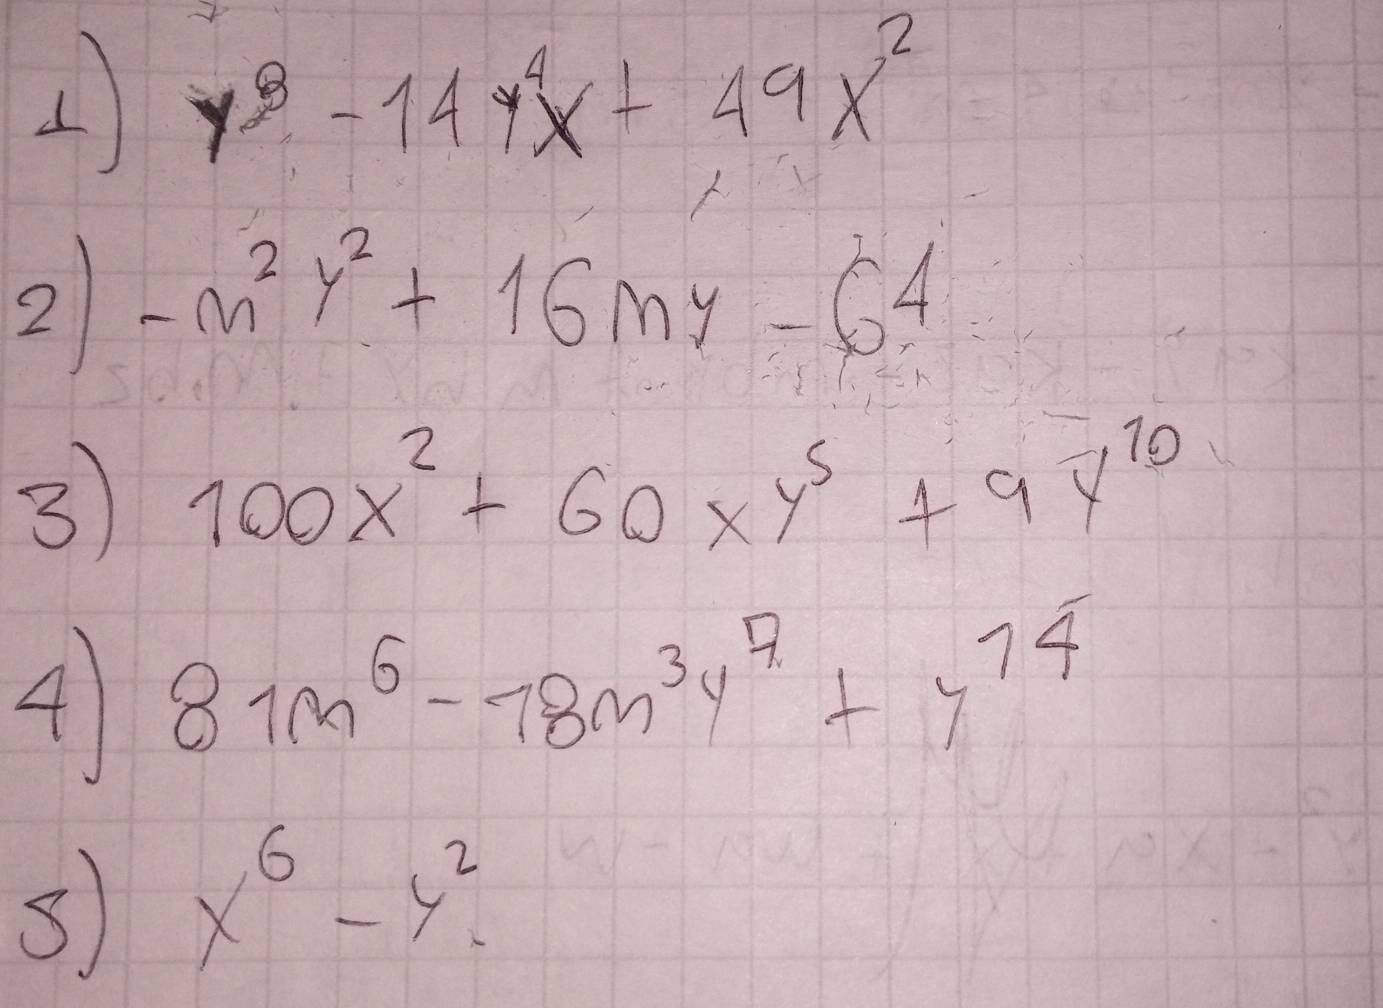 1) y⁸ - 14y⁴x + 49x²
2) -m²y² + 16my - 64
3) 100x² + 60xy⁵ + 9y¹⁰
4) 81m⁶ - 18m³y⁷ + y¹⁴
5) x⁶ - y²